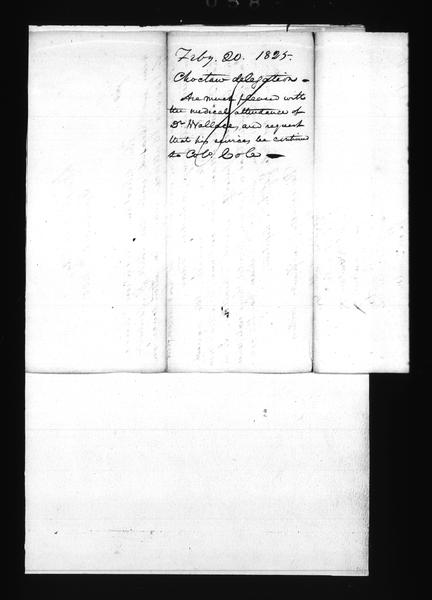 Feby. 20. 1825.
Choctaw delegation -
Are much pleased with
the medical attendance of
Dr Wallace, and request
that his services be continued
to Col. Cole -